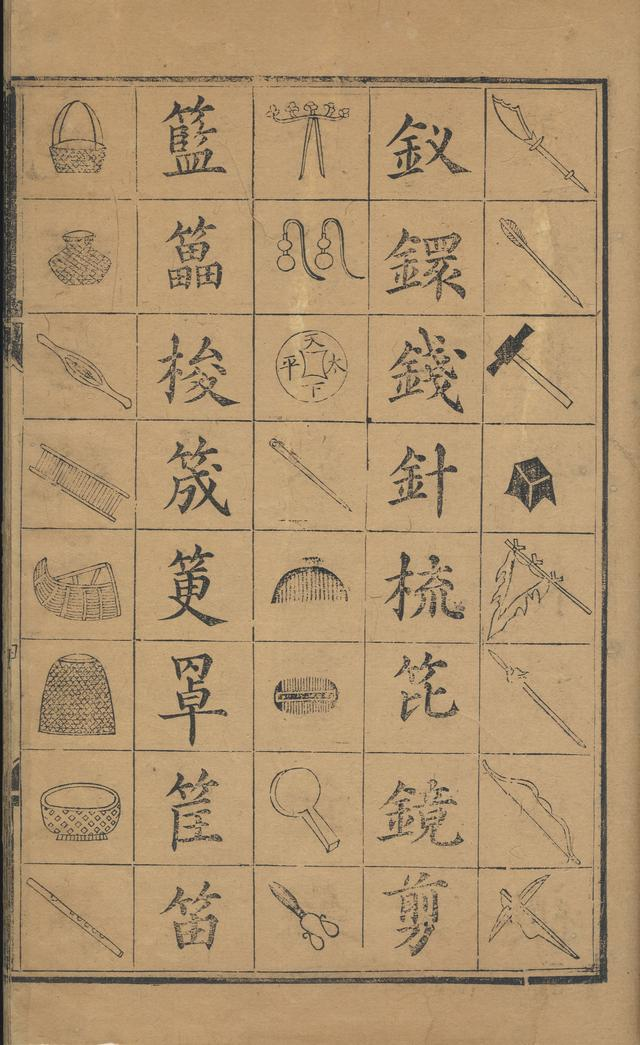 釵
鐶
錢
針
梳
笓
鏡
剪
天下太平
籃
梭
筬
筻
罩
筐
笛